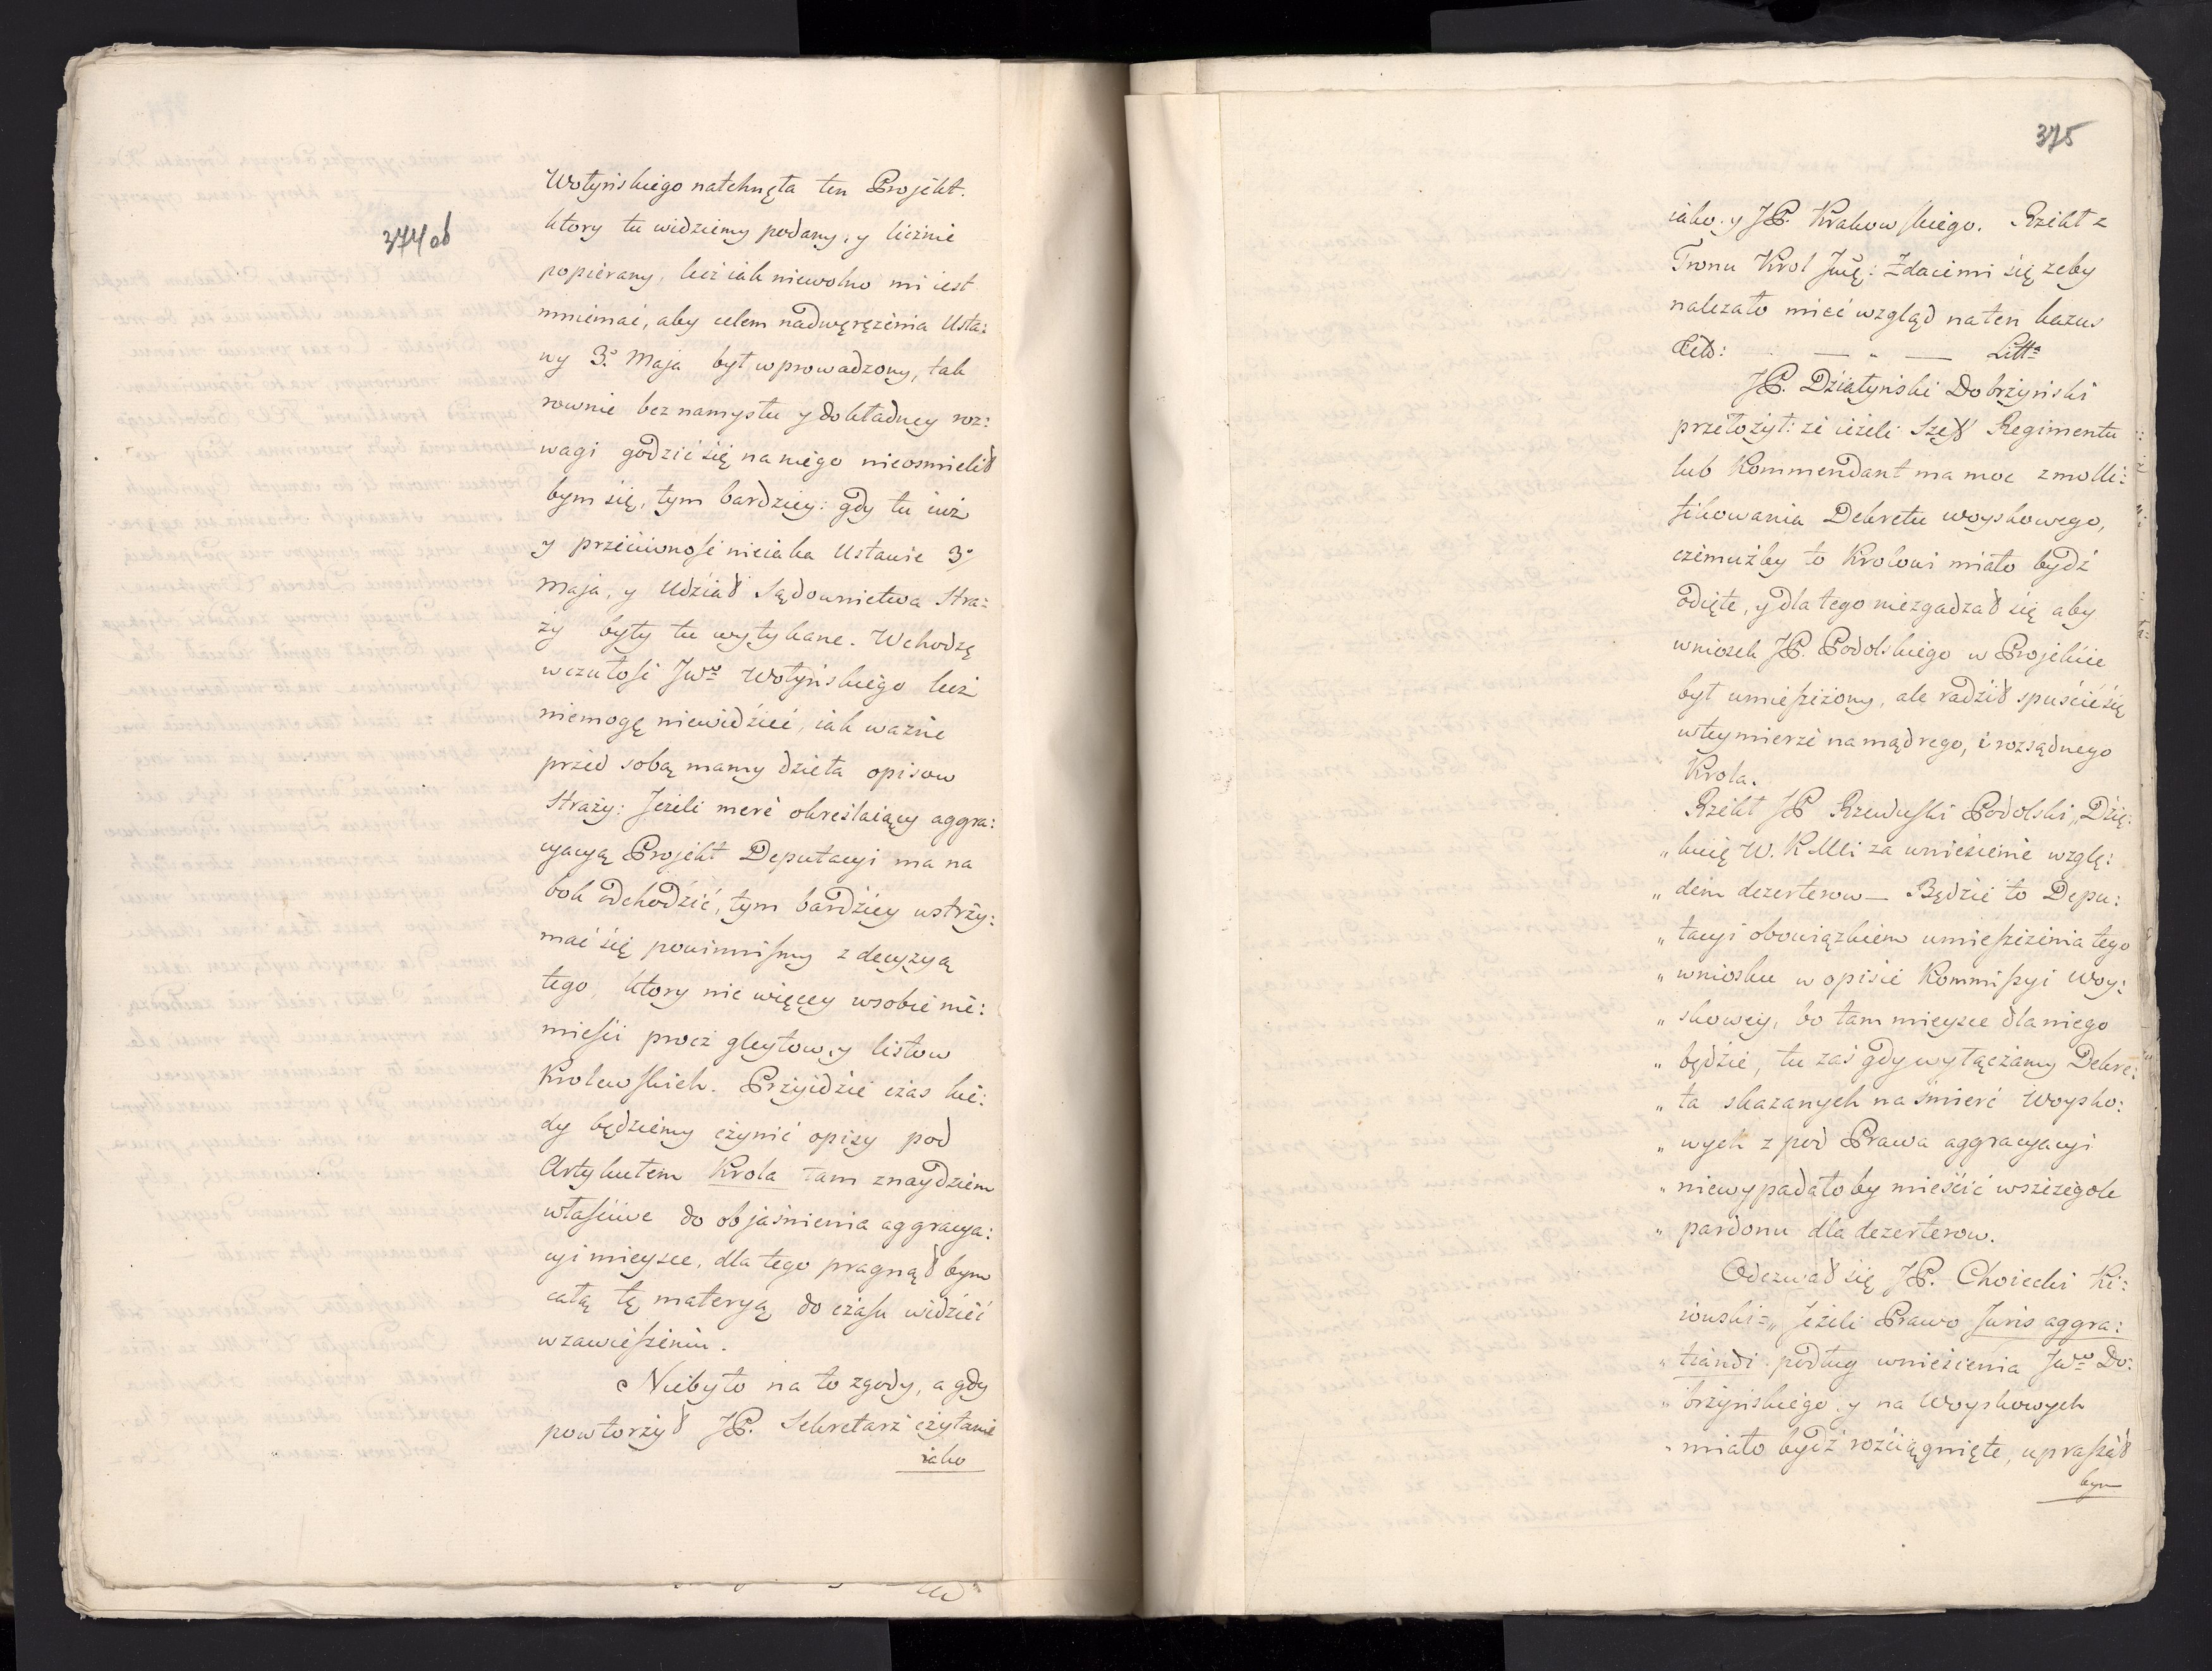 374 ob
Wołyńskiego natchnęła ten Projekt.
ktory tu widziemy podany, y licznie
popierany, lecz iak niewolno mi iest
mniemać, aby celem nadwęręzenia Usta:
wy 3.° Maja był wprowadzony, tak
rownie bez namysłu y dokładney roz:
wagi godzić się na niego nieosmielił
bym się, tym bardziey: gdy tu iuż
y przeciwność nieiaka Ustawie 3°
Maja, y Udział Sądownictwa Stra:
ży były tu wytykane. Wchodzę
wczułość Jwo Wołyńskiego lecz
niemogę niewidzieć, iak ważne
przed sobą mamy dzieła opisow
Straży: Jeżeli mere okreslaiący aggra:
cyacyą Projekt Deputacyi ma na
bok odchodzić, tym bardziey wstrzy:
mać się powinnismy z decyzyą
tego, ktory nic więcey wsobie nie:
mieści procz gleytow, y listow
Krolewskich. Przyidzie czas kie:
dy będziemy czynić opisy pod
Artykułem Krola tam znaydziem
właściwe do objaśnienia aggracya:
cyi mieysce, dla tego pragnął bym
całą tę materyą do czasu widzieć
wzawieszeniu.
Niebyło na to zgody, a gdy
powtorzył JP. Sekretarz czytanie
iako
375
iako y JP. Krakowskiego. Rzekł z
Tronu Krol Jmć: Zdaiemi się zeby
należało mieć wzgląd na ten kazus
Cets: — " — Litta
JP. Działyński Dobrzyński
przełożył: że ieżeli Szef Regimentu
lub Kommendant ma moc zmolli:
fikowania Dekretu woyskowego,
czemużby to Krolowi miało bydź
odięte, y dla tego niezgadzał się aby
wniosek JP. Podolskiego w Projekcie
był umieszczony, ale radził spuścić się
wtey mierze na mądrego, i rozsądnego
Krola.
Rzekł JP Rzewuski Podolski „Dzię:
„kuię W. K Mci za wniesienie wzglę:
„dem dezerterow — Będzie to Depu:
„tacyi obowiązkiem umieszczenia tego
„wniosku w opisie Kommissyi Woy:
„skowey, bo tam mieysce dla niego
„będzie, tu zaś gdy wyłączamy Dekre:
„ta skazanych na śmierć Woysko:
„wych z pod Prawa aggracyacyi
„niewypadałoby mieścić wszczegole
„pardonu dla dezerterow.
Odezwał się JP. Choiecki Ki:
iowski= „Jeżeli Prawo Juris aggra:
„tiandi podług wniesienia Jwo Do:
„brzyńskiego y na Woyskowych
„miało bydź rozciągnięte, upraszał
bym